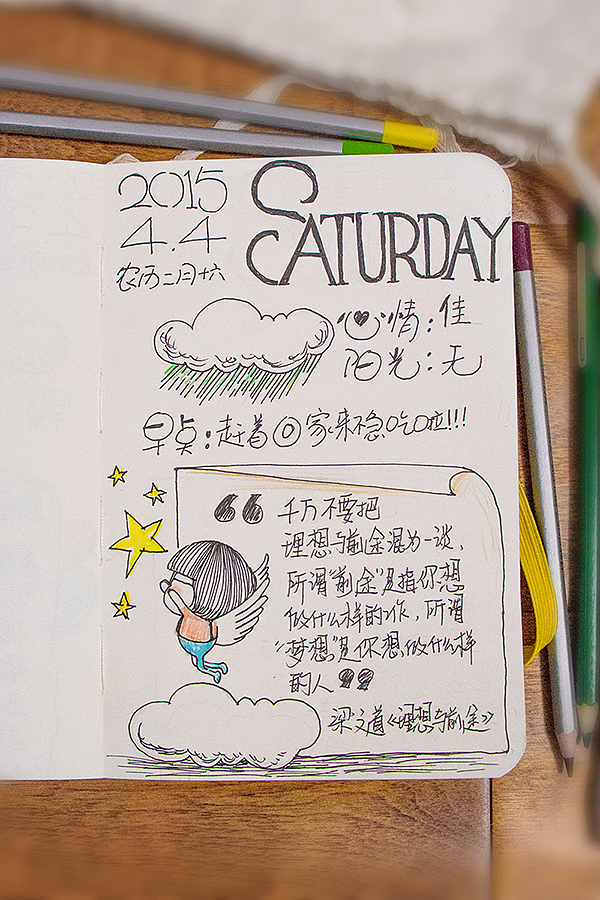 2015
SATURDAY
4.4
农历二月十六
心情:佳
阳光:无
早点:赶着回家来不急吃啦!!!
“千万不要把
理想与前途混为一谈,
所谓“前途”是指你想
做什么样的工作,所谓
“梦想”是你想做什么样
的人”
梁文道《理想与前途》